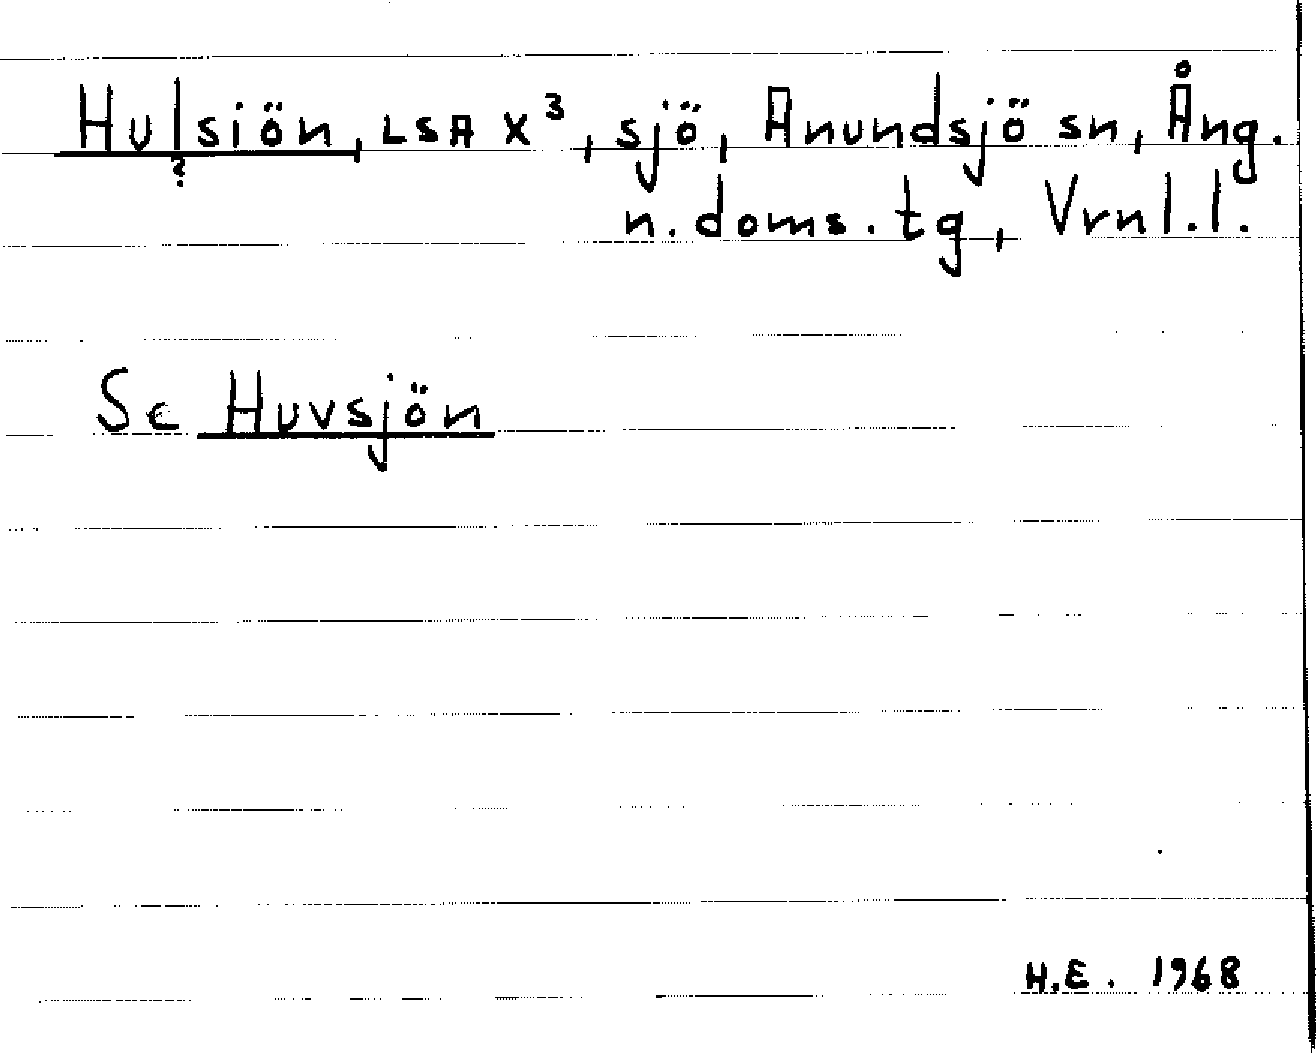 Hulsiön, LSA X³, sjö, Anundsjö sn, Ång.
?
n. doms. tg, Vrnl. l.
Se Huvsjön
H.E. 1968